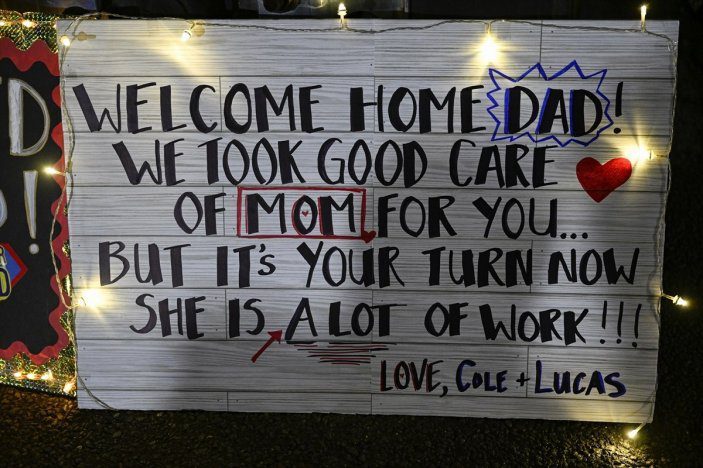 WELCOME HOME DAD!
WE TOOK GOOD CARE
OF MOM FOR YOU...
BUT IT'S YOUR TURN NOW
SHE IS A LOT OF WORK!!!
LOVE, COLE + LUCAS